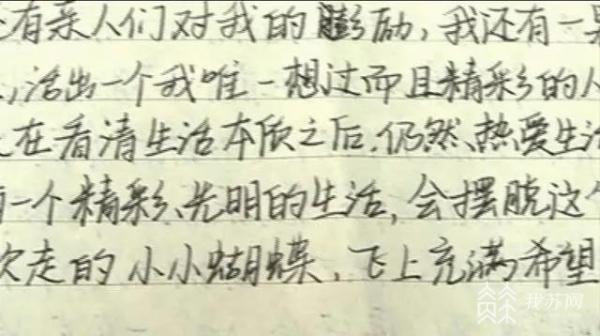 有亲人们对我的膨励，我还有一
，活出一个我唯一想过而且精彩的人
在看清生活本质之后，仍然、热爱生活
一个精彩、光明的生活，会摆脱这个
走的小小蝴蝶，飞上充满希望
我苏网